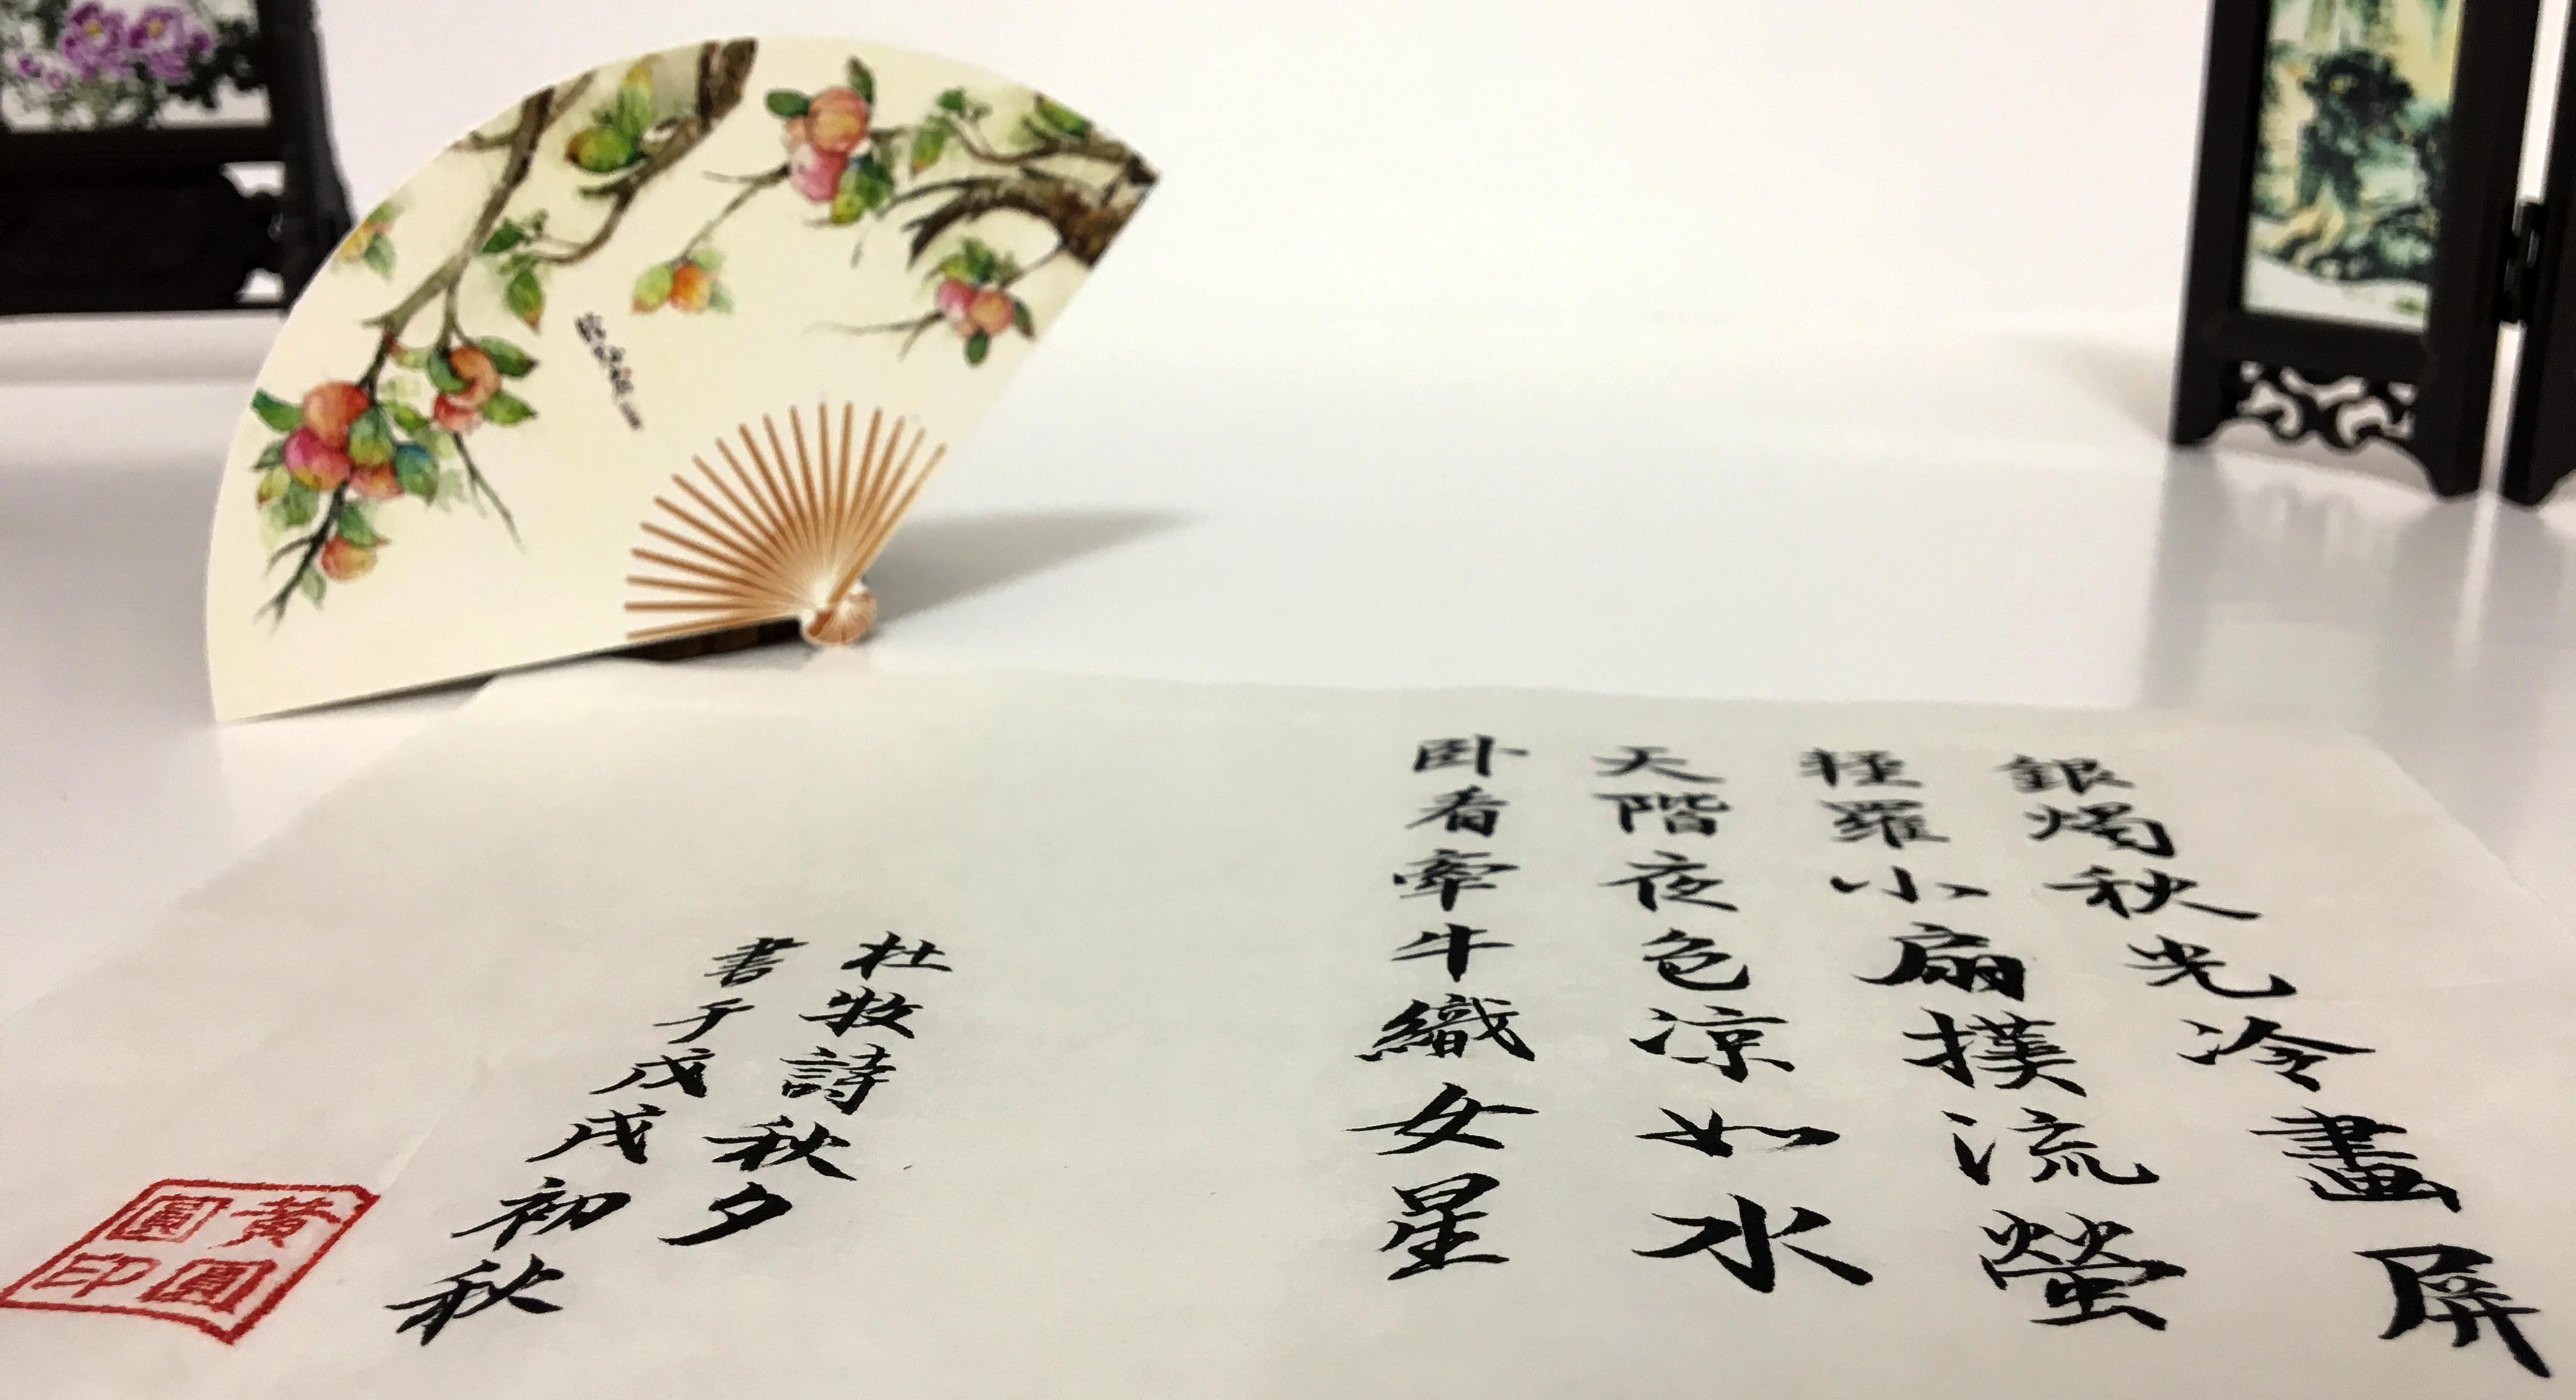 銀燭秋光冷畫屏
輕羅小扇撲流螢
天階夜色涼如水
卧看牽牛織女星
杜牧詩秋夕
書于戊戌初秋
黃圓
圓印